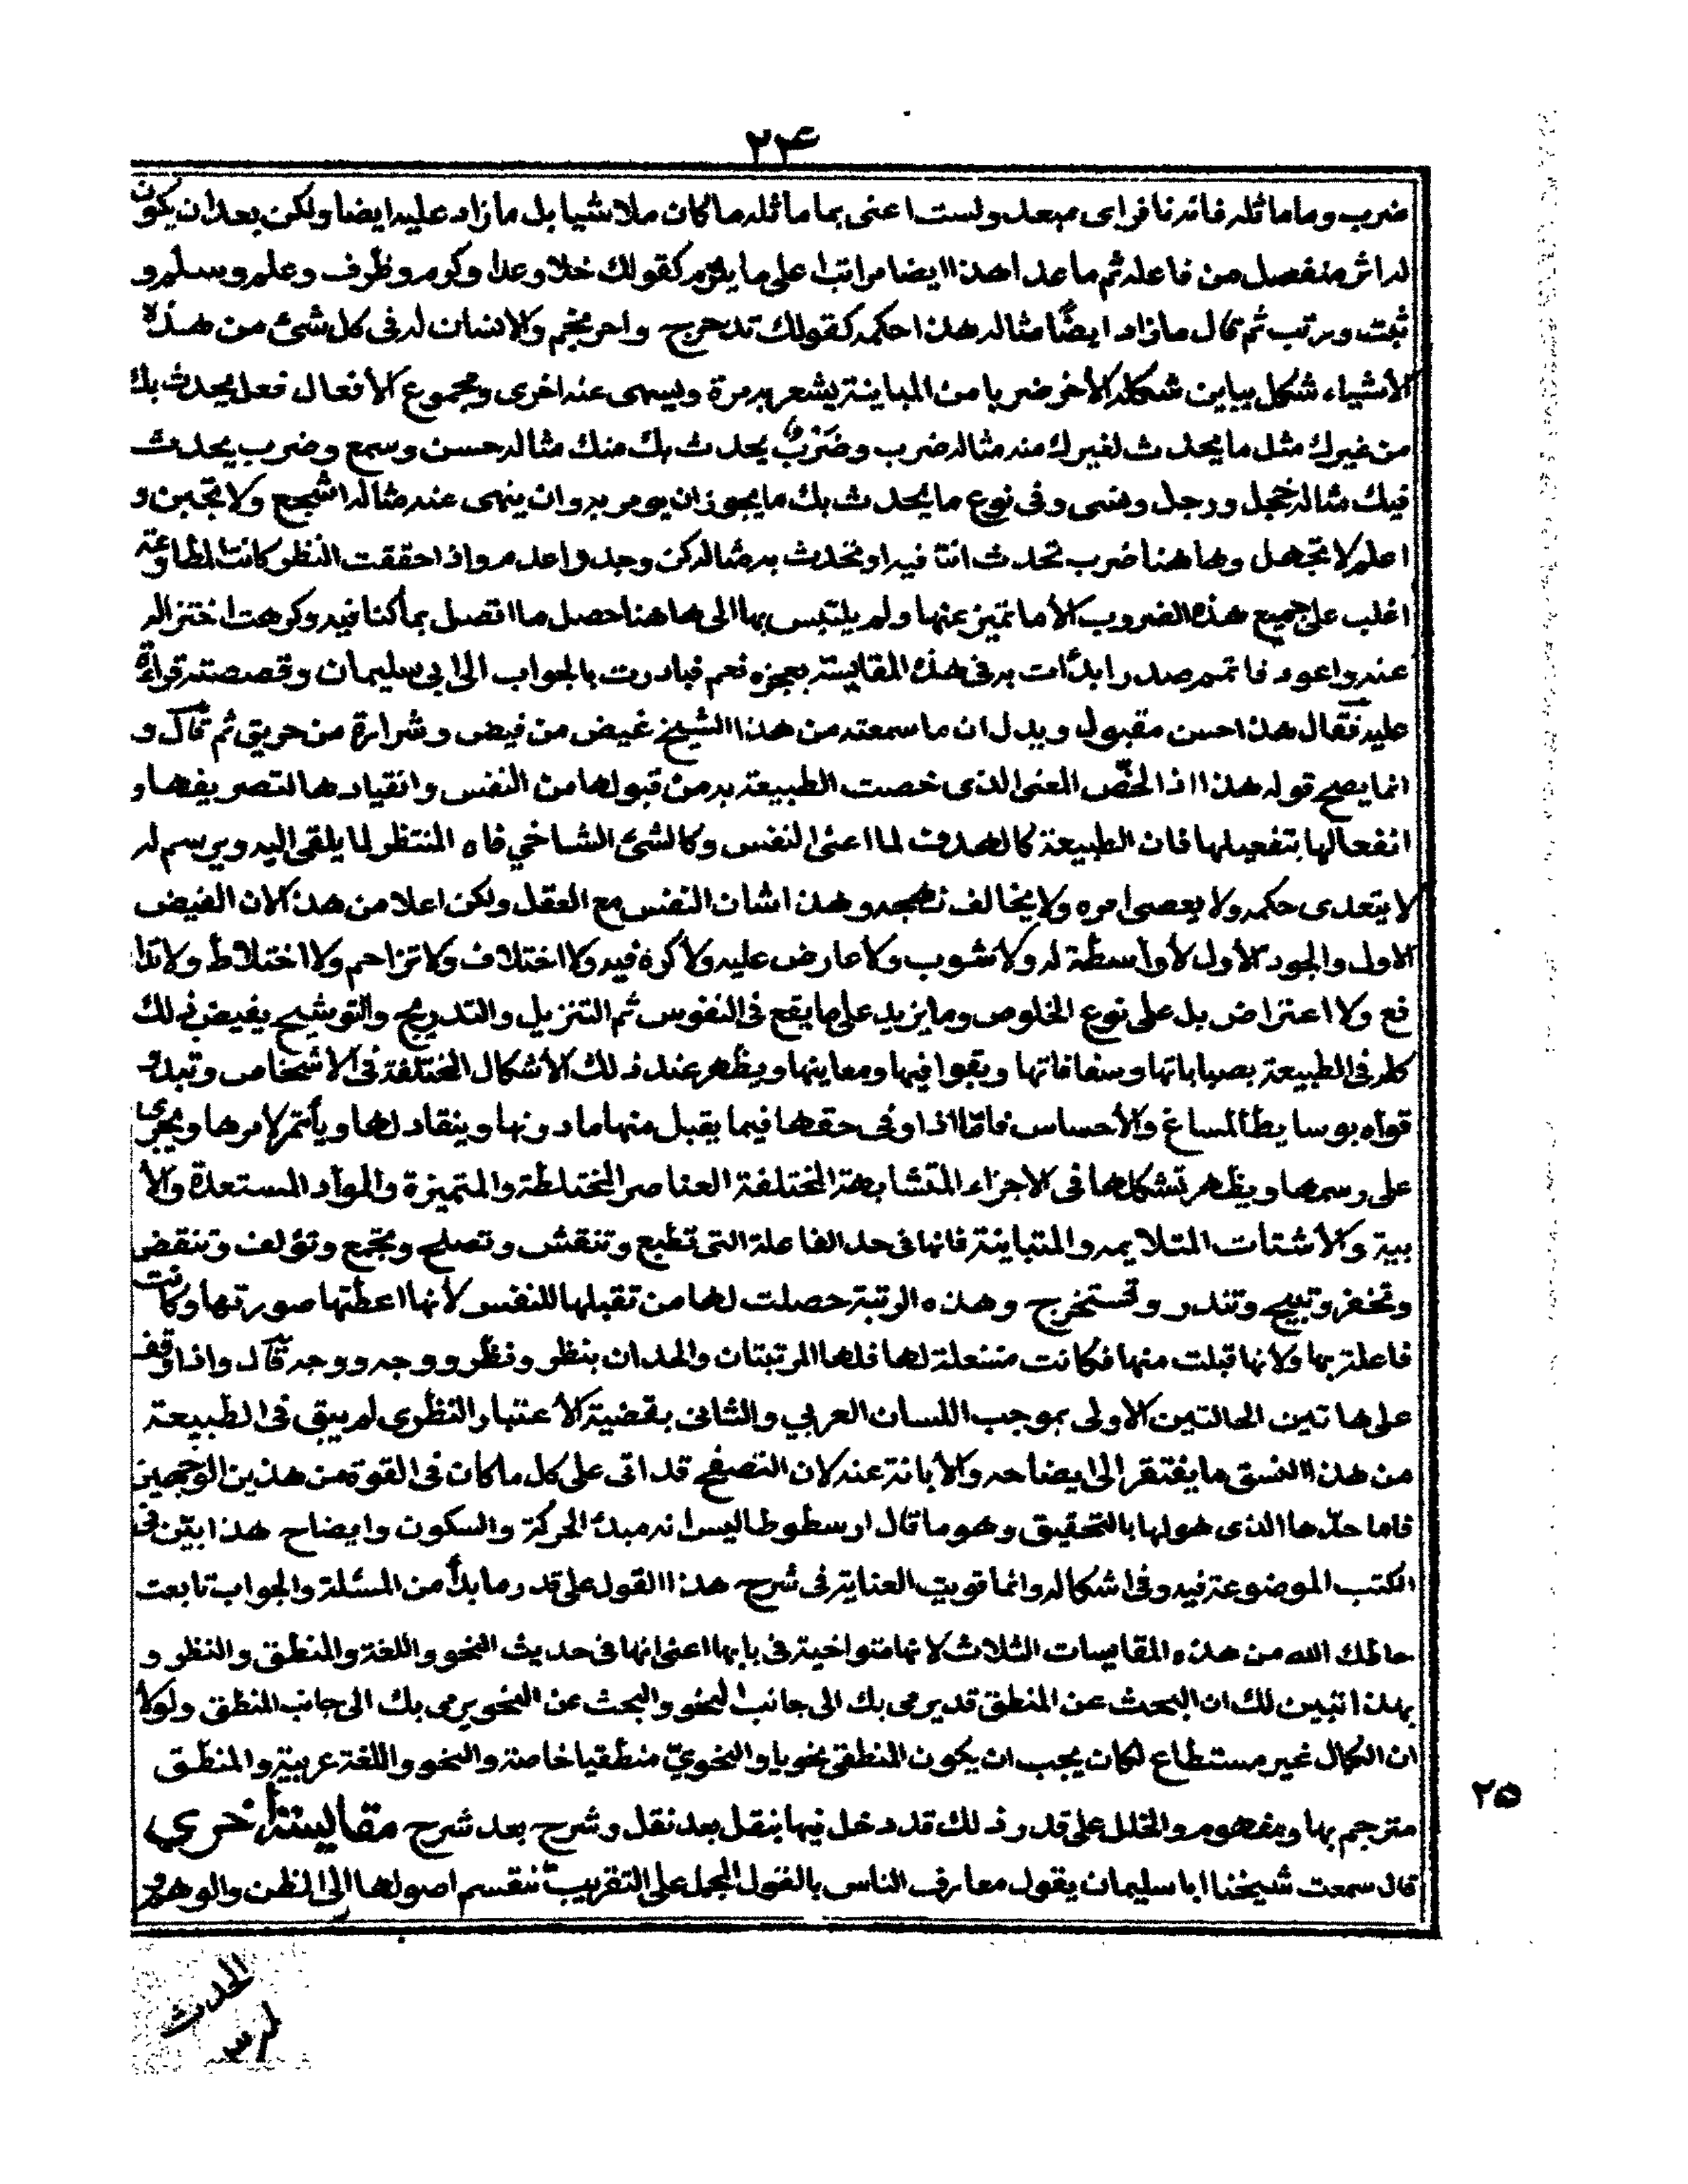 ۲۴
ضرب وما ماثله فانه نافراى مبعد ولست اعنى بما ماثله ما كان ملاشيا بل ما زاد عليه ايضا ولكن بعد ان يكون
له اثر منفصل من فاعله ثم ما عدا هذا ايضا مراتب على ما يلزم كقولك خلا وعدا وكرم وظرف وعلم وسلم و
ثبت ورتب ثم قال ما زاد ايضًا مثاله هذا حكمه كقولك تدحرج واحرنجم والانسان له فى كل شئ من هذه
الأشياء شكل يباين شكله الأخر ضربا من المباينة يشعر به مرة ويسهى عنه اخرى ومجموع الأفعال فعل يحدث بك
من غيرك مثل ما يحدث لغيرك منه مثاله ضرب وضَرْبٌ يحدث بك منك مثاله حسن وسمع وضرب يحدث
فيك مثاله خجل ووجل ونسى وفى نوع ما يحدث بك ما يجوز ان يومر به وان ينهى عنه مثاله اشجع ولا تجبن و
اعلم لا تجهل وها هنا ضرب تحدث انت فيه او تحدث به مثاله كن وجد واعدم واذا حققت النظر كانت المطاوعة
اغلب على جميع هذه الضروب الأ ما تميز عنها ولم يلتبس بها الى ها هنا حصل ما اتصل بما كنا فيه وكرهت اختزاله
عنه واعود فاتمم صدرا بدأت به فى هذه المقايسة بعجزه نعم فبادرت بالجواب الى ابى سليمان وقصصته قراءة
عليه فقال هذا حسن مقبول ويدل ان ما سمعته من هذا الشيخ غيض من فيض وشرارة من حريق ثم قال و
انما يصح قوله هذا اذا لخّص المعنى الذى خصت الطبيعة به من قبولها من النفس وانقيادها لتصريفها و
انفعالها بتفعيلها فان الطبيعة كالهدف لما اعنى النفس وكالشئ الشاخي فاه المنتظر لما يلقى اليه ويرسم له
لا يتعدى حكمه ولا يعصى امره ولا يخالف نهجه وهذا شان النفس مع العقل ولكن اعلا من هذا لان الفيض
الاول والجود الأول لأواسطة له ولا شوب ولا عارض عليه ولا كره فيه ولا اختلاف ولا تزاحم ولا اختلاط ولا تدا
فع ولا اعتراض بل على نوع الخلوص وما يزيد على ما يقع فى النفوس ثم التنزيل والتدريج والتوشيح يفيض ذلك
كله فى الطبيعة بصباباتها وسفافاتها وبقوا فيها ومعاينها ويظهر عند ذلك الأشكال المختلفة فى الأشخاص وتبدو
قواه بوسايط المساغ والأحساس فامّا اذا وفى حقها فيما يقبل منها ما دونها وينقاد لها ويأتمر لامرها ويجرى
على رسمها ويظهر تشكلها فى الاجزاء المتشابهة المختلفة العناصر المختلطة والمتميزة والمواد المستعدة والأ
بية والأشتات المتلايمه والمتباينة فانها فى حد الفاعلة التى تطبع وتنقش وتصلح وتجمع وتؤلف وتنقض
وتحفز وتبيح وتنذر وتستخرج وهذه الرتبة حصلت لها من تقبلها للنفس لأنها اعطتها صورتها وكانت
فاعلة بها ولانها قبلت منها فكانت منفعلة لها فلها المرتبتان والحدان بنظر ونظر ووجه ووجه قال واذا وقف
على هاتين الحالتين الاولى بموجب اللسان العربي والثانى بقضية الأعتبار النظرى لم يبق فى الطبيعة
من هذا النسق ما يفتقر الى ايضاحه والأبانة عنه لان التصفح قد اتى على كل ما كان فى القوة من هذين الوجهين
فاما حدّها الذى هو لها بالتحقيق وهو ما قال ارسطوطاليس انه مبدء الحركة والسكون وايضاح هذا بيّن فى
الكتب الموضوعة فيه وفى اشكاله وانما قويت العناية فى شرح هذا القول على قدر ما بدأ من المسئلة والجواب تابعت
حاطك الله من هذه المقايسات الثلاث لانها متواخية فى بابها اعنى انها فى حديث النحو واللغة والمنطق والنظر و
بهذا تبين لك ان البحث عن المنطق قد يرمى بك الى جانب النحو والبحث عن النحو يرمى بك الى جانب المنطق ولولا
ان الكمال غير مستطاع لكان يجب ان يكون المنطقى نحويا والنحويّ منطقيا خاصة والنحو واللغة عربية والمنطق
مترجم بها ومفهوم والخلل على قدر ذلك قد دخل فيها بنقل بعد نقل وشرح بعد شرح مقايسة أخرى
۲۵
قال سمعت شيخنا ابا سليمان يقول معارف الناس بالقول المجمل على التقريب تنقسم اصولها الى الظن والوهم و
الحدس